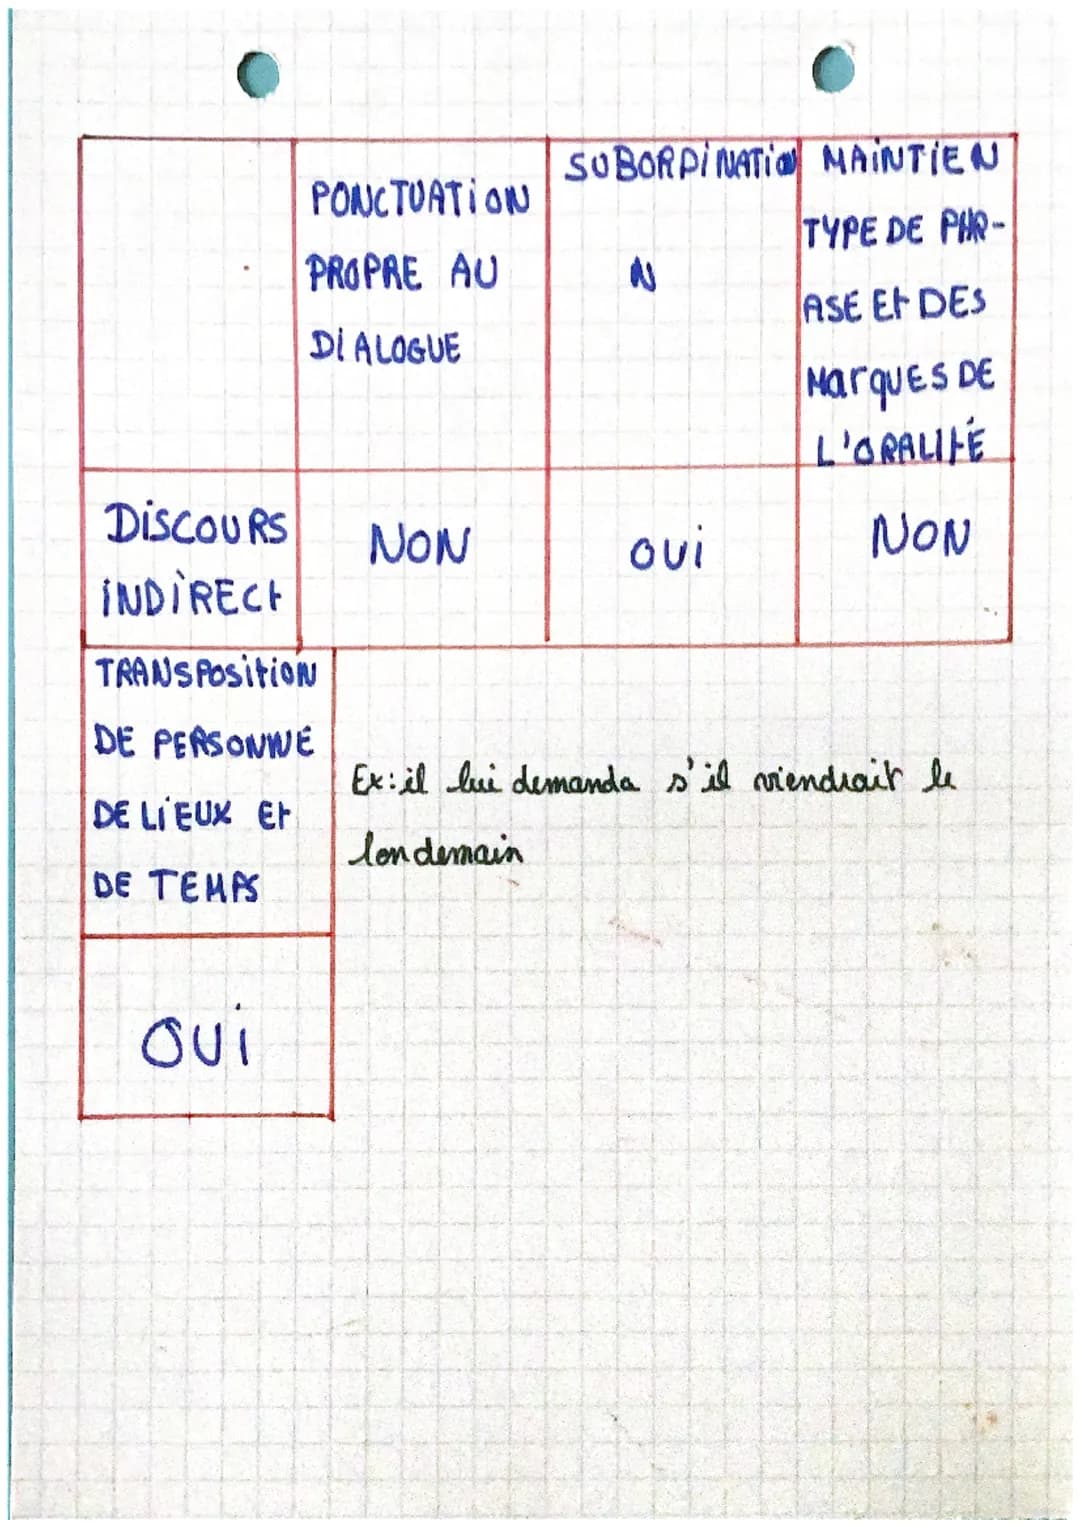 PONCTUATION
PROPRE AU
DIALOGUE
SUBORDINATIO
N
MAINTIEN
TYPE DE PHR-
ASE Et DES
MARQUES DE
L'ORALITÉ
DISCOURS
INDIRECT
NON
OUI
NON
TRANSPOSITION
DE PERSONNE
DE LIEUX Et
DE TEMPS
OUI
Ex: il lui demanda s'il viendrait le
londemain